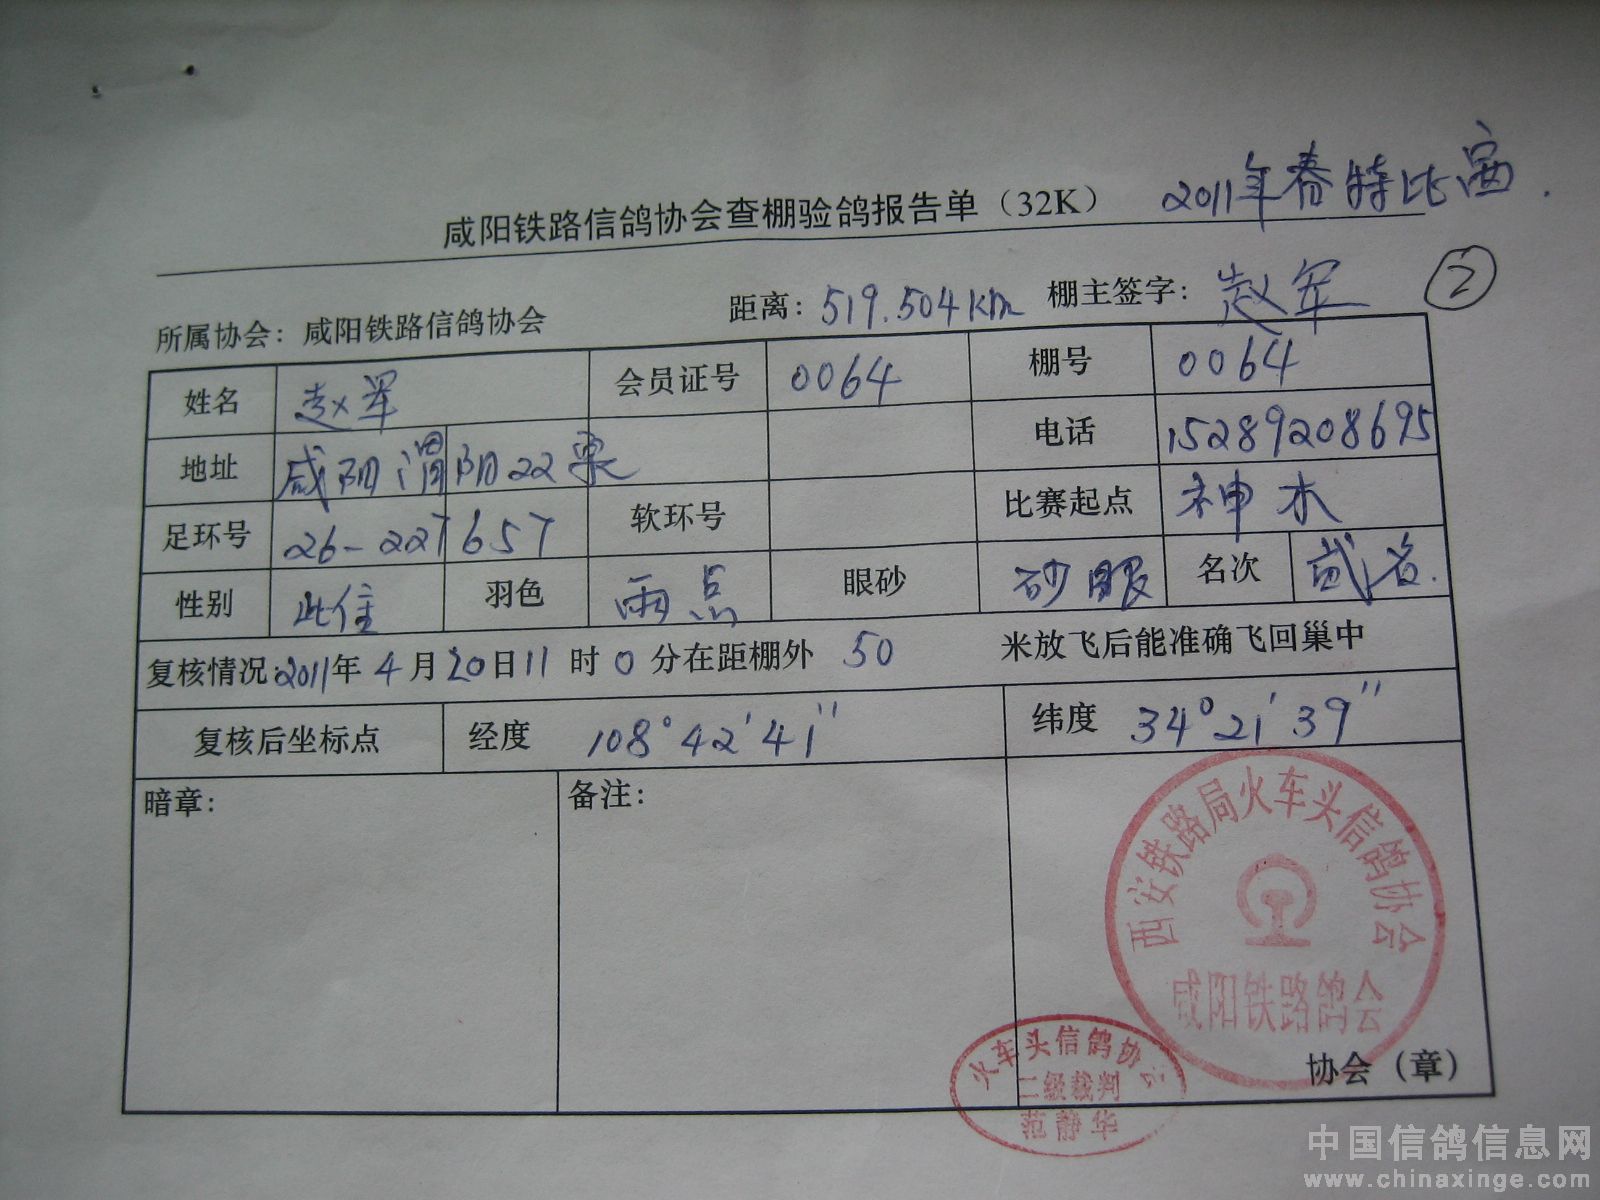 咸阳铁路信鸽协会查棚验鸽报告单（32K） 2011年春特比
2
所属协会：咸阳铁路信鸽协会 距离：519.504km 棚主签字：赵军
姓名 赵军 会员证号 0064 棚号 0064
地址 咸阳渭阳22 电话 15289208695
足环号 26-227657 软环号 比赛起点 神木
性别 羽色 雨点 眼砂 砂眼 名次 贰名.
复核情况:2011年4月20日11时0分在距棚外 50 米放飞后能准确飞回巢中
复核后坐标点 经度 108°42′41″ 纬度 34°21′39″
暗章： 备注：
西安铁路局火车头信鸽协会
咸阳铁路鸽会
协会（章）
火车头信鸽协会
二级裁判
范静华
中国信鸽信息网
www.chinaxinge.com